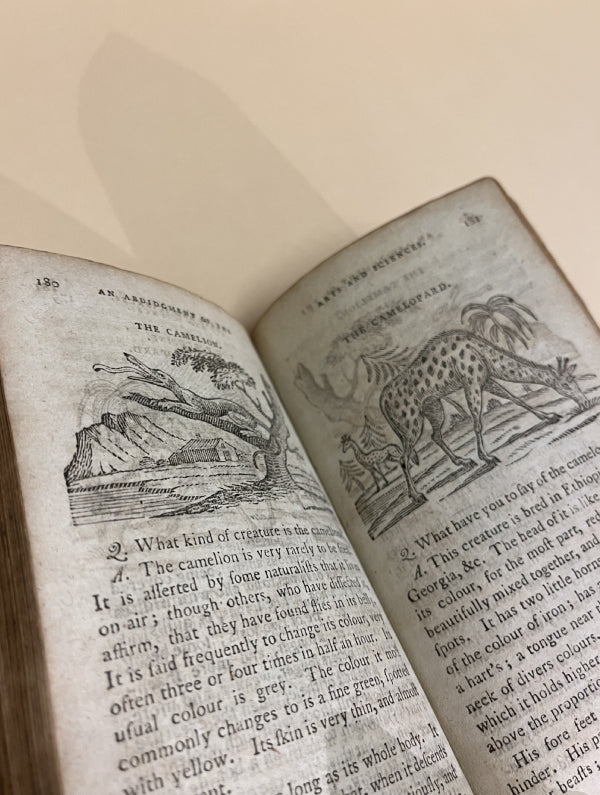 180
AN ABRIDGMENT OF THE
THE CAMELION.
Q. What kind of creature is the
A. The camelion is very rarely to be
It is aſſerted by ſome naturaliſts that it lives
on air; though others, who have diſſected it,
affirm, that they have found flies in its belly.
It is ſaid frequently to change its colour, very
often three or four times in half an hour. Its
uſual colour is grey. The colour it moſt
commonly changes to is a fine green, ſpotted
with yellow. Its ſkin is very thin, and almoſt
long as its whole body. It
when it deſcends
and
181
ARTS AND SCIENCES.
THE CAMELOPARD.
Q. What have you to ſay of the
A. This creature is bred in
Georgia, &c. The head of it is like
its colour, for the moſt part,
beautifully mixed together, and
ſpots. It has two little
of the colour of iron; has
a hart's; a tongue near
neck of divers colours,
which it holds higher
above the
His fore feet
hinder. His
beaſts;